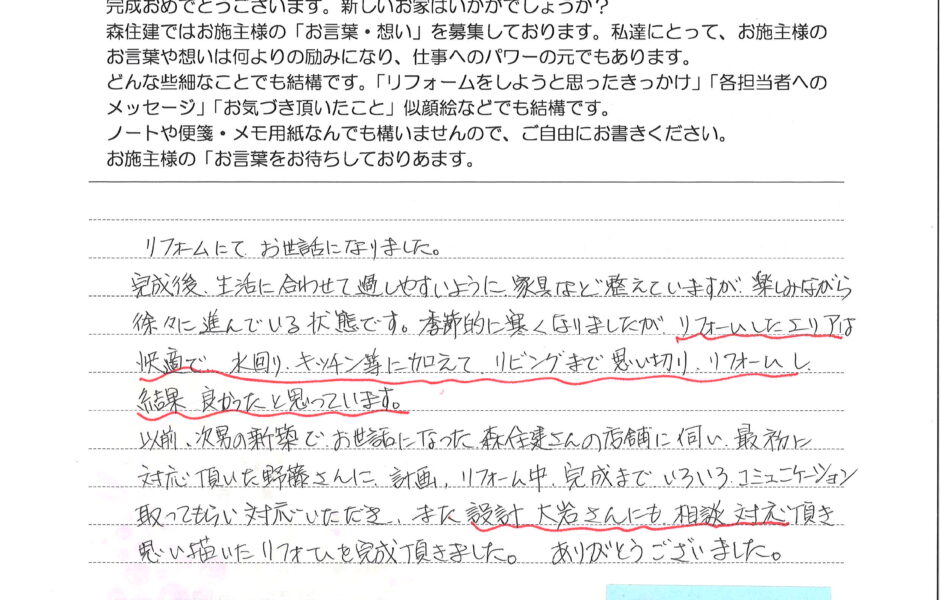 完成おめでとうございます。新しいお家はいかがでしょうか？
森住建ではお施主様の「お言葉・想い」を募集しております。私達にとって、お施主様の
お言葉や想いは何よりの励みになり、仕事へのパワーの元でもあります。
どんな些細なことでも結構です。「リフォームをしようと思ったきっかけ」「各担当者への
メッセージ」「お気づき頂いたこと」似顔絵などでも結構です。
ノートや便箋・メモ用紙なんでも構いませんので、ご自由にお書きください。
お施主様の「お言葉をお待ちしておりあます。
リフォームにて お世話になりました。
完成後、生活に合わせて過しやすいように 家具など整えていますが 楽しみながら
徐々に進んでいる状態です。季節的に寒くなりましたが リフォームしたエリアは
快適で、水回り、キッチン等に加えて、リビングまで思い切り、リフォームし
結果 良かったと思っています。
以前、次男の新築で お世話になった 森住建さんの店舗に伺い、最初に
対応頂いた野藤さんに、計画、リフォーム中、完成まで いろいろ コミュニケーション
取ってもらい対応いただき、また 設計 大岩さんにも 相談 対応頂き
思い描いたリフォームを完成頂きました。 ありがとうございました。